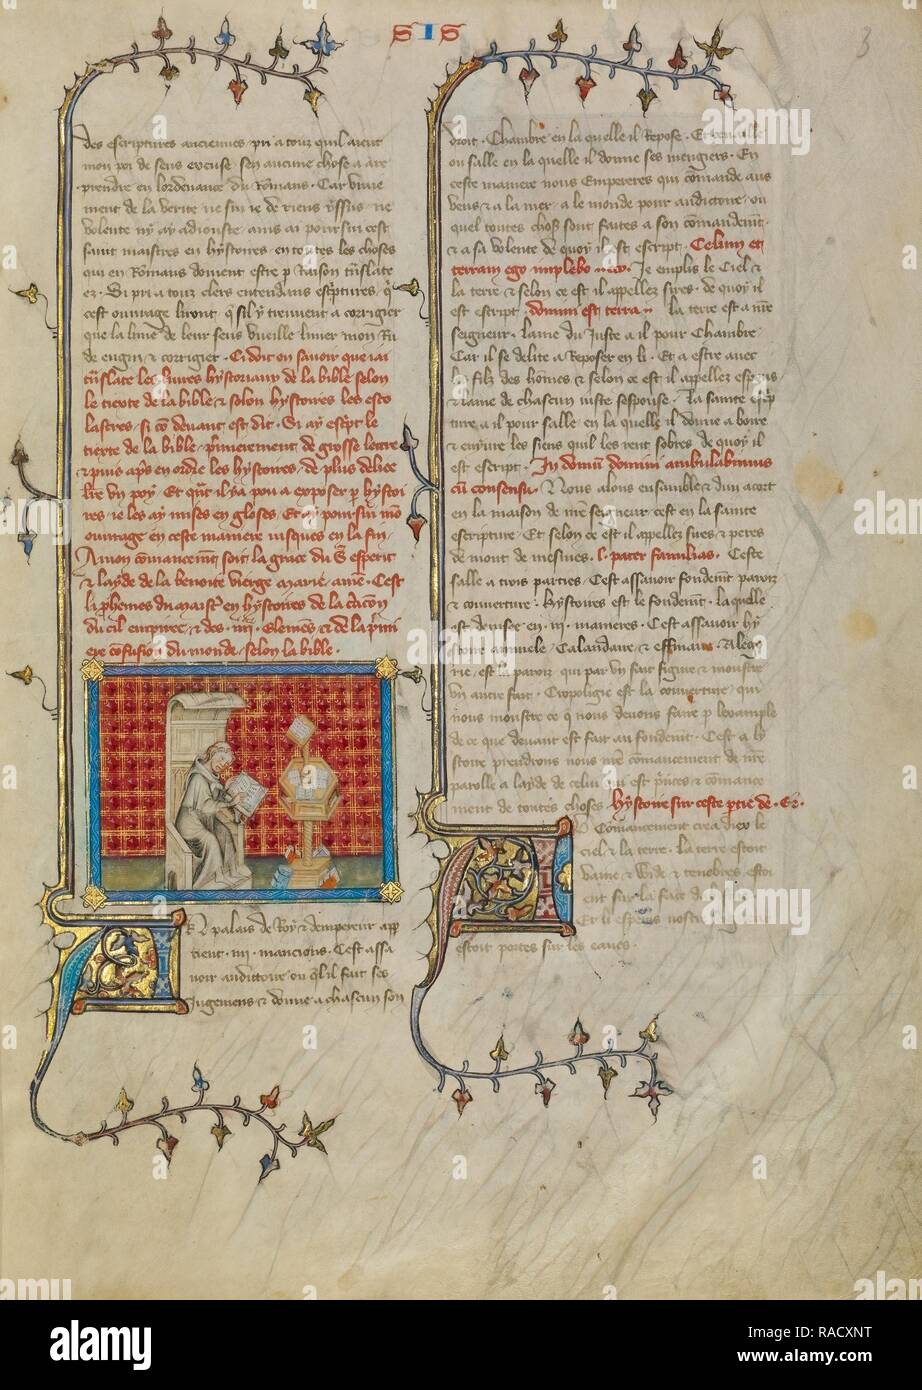 SIS
3
des escriptures anciennes pri a touz quil aient
mon poi de sens excuse sen aucune chose a a re
prendre en lordenance du Romans. Car vraie
ment de la verite ne sui ie de riens yssus. ne
volente ny ay adiouste. ains ai poursui cest
saint maistres en hystoires en toutes les choses
qui en Romans doivent estre p Raison tnslate
ez. Si pri a touz clers entendans escptures. q
cest ouvrage liront. q sil y treuvent a corrigier
que la lime de leur sens vueille limer mon Ru
de engin & corrigier. Ci doit on savoir que iai
tnslate les livres hystoriaux de la bible selon
le tiexte de la bible & selon hystoires les esco
lastres. si co devant est dit. Si ay escpt le
tiexte de la bible. pmierement de grosse lettre
& puis aps en ordre les hystoires. de plus deliee
lre un poy. Et qnt il ya pou a exposer p hystoi
res. ie les ay mises en gloses. Et ay poursui mo
ouvrage en ceste maniere iusques en la fin.
A mon comancemt soit la grace du S esperit
& layde de la benoite vierge marie. ame. Cest
li phemes du maistr en hystoires de la cacion
du ciel empiree. & des .iiii. Elemens & de la pmi
ere cofusion du monde. selon la bible.
EN palais de Roy & dempereur app
tient .iii. mancions. Cest assa
voir auditoire ou ql il fait ses
Jugemens & donne a chascun son
droit. Chambre en la quelle il Repose. Et
ou salle en la quelle il donne ses mengiers. En
ceste maniere nous Empereres qui comande aus
vens & a la mer. a le monde pour auditoire. ou
quel toutes choses sont faites a son comandemt.
& a sa volente de quoy il est escript. Celum et
terram ego implebo. Je emplis le Ciel &
la terre. & selon ce est il appellez sires. de quoy il
est escript. domini est terra. la terre est a nre
seigneur. lame du Juste a il pour Chambre.
Car il se delite a Reposer en li. Et a estre avec
les filz des homes & selon ce est il appellez espous
& lame de chascun iuste sespouse. La sainte escp
ture. a il pour salle. en la quelle il donne a boire
& enyvre les siens quil les rent sobres de quoy il
est escript. In domu domini ambulabimus
cu consensu. Nous alons ensamble & dun acort
en la maison de nre seigneur cest en la sainte
escripture. Et selon ce est il appellez sires & peres
de mesnies. i. pater familias. Ceste
salle a trois parties. Cest assavoir fondemt paroiz
& couverture. hystoires est le fondemt. la quelle
est devisee en .iii. manieres. Cest assavoir hy
stoire annuele. Calandaire & effimaire. Alego
rie. est la paroiz qui par un fait figure & monstre
un autre fait. Tropoligie est la couverture. qui
nous monstre ce q nous devons faire p lexample
de ce que devant est fait au fondemt. Cest a hy
stoire prendrons nous nre comancement de nre
parolle a layde de celui qui est princes & comance
ment de toutes choses. hystoire sur ceste ptie de
Comancement crea diex le
ciel & la terre. la terre estoit
vaine & vuide & tenebres estoi
ent sur la face
Et li esperis nostre
estoit portes sur les eaues.
alamy
alamy stock photo
RACXNT
www.alamy.com